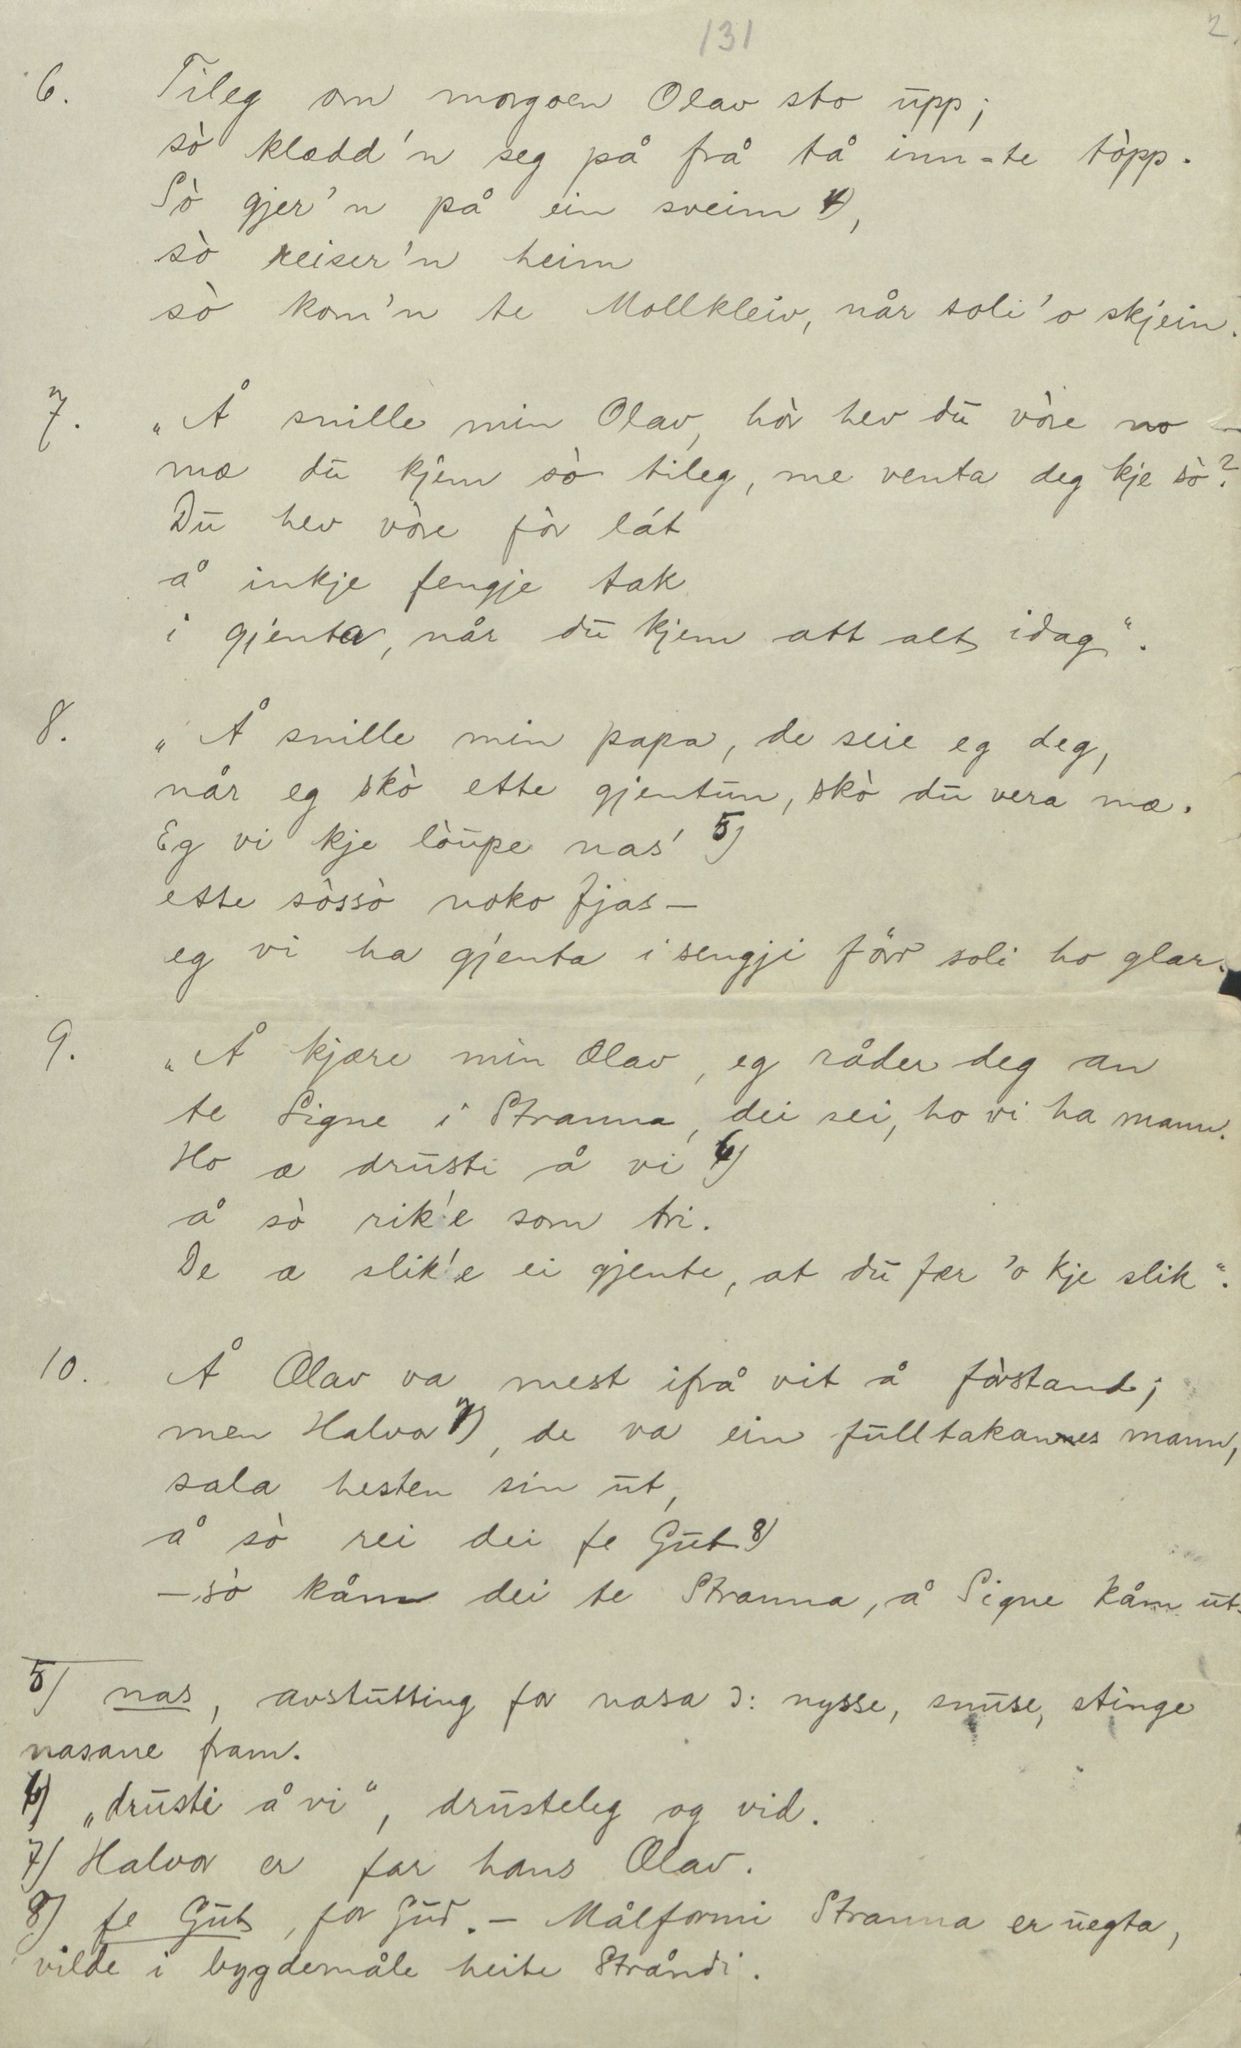 131
2.
6. Tileg om morgoen Olav sto upp;
sò klædd'n seg på frå tå inn-te tòpp.
Sò gjer'n på ein sveinn 4),
sò reiser'n heim
sò kom'n te Mollkleiv, når soli'o skjein.
7. „Å snille min Olav, hòr hev du vòre no –
mæ du kjem sò tileg, me venta deg kje sò?
Du hev vòre fòr lát
å inkje fengje tak
i gjenta, når du kjem att alt idag“.
8. „Å snille min papa, de seie eg deg,
når eg skò ette gjentun, skò du vera mæ.
Eg vi kje lòupe nas' 5)
ette sòssò noko fjas –
eg vi ha gjenta i sengji förr soli ho glar.
9. „Å kjære min Olav, eg råder deg an
te Signe i Stranna, dei sei, ho vi ha mann.
Ho æ drusti å vi 6)
å sò rik'e som tri.
De æ slik'e ei gjente, at du fær 'o kje slik“.
10. Å Olav va mest ifrå vit å fòrstand;
men Halvor 7), de va ein fulltakannes mann,
sala hesten sin ut,
å sò rei dei fe Gut 8)
– sò kåm dei te Stranna, å Signe kåm ut.
5) nas, avstutting for nasa ɔ: nysse, snuse, stinge
nasane fram.
6) „drusti å vi“, drusteleg og vid.
7) Halvor er far hans Olav.
8) fe Gut, for Gud. – Målformi Stranna er uegta,
vilde i bygdemåle heite Stråndi.